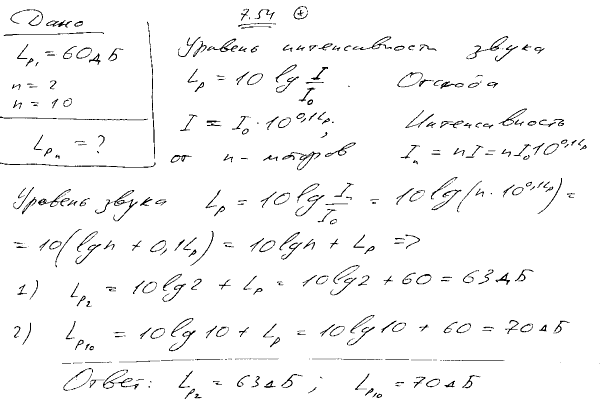 7.54
Дано
L_p₁ = 60 дБ
n = 2
n = 10
L_pₙ = ?
Уровень интенсивности звука
L_p = 10 lg I/I₀ . Отсюда
I = I₀·10^(0,1L_p); Интенсивность
от n-моторов Iₙ = nI = nI₀10^(0,1L_p)
Уровень звука L_p = 10 lg Iₙ/I₀ = 10 lg(n·10^(0,1L_p)) =
= 10(lg n + 0,1L_p) = 10 lg n + L_p =>
1) L_p₂ = 10 lg 2 + L_p = 10 lg 2 + 60 = 63 дБ
2) L_p₁₀ = 10 lg 10 + L_p = 10 lg 10 + 60 = 70 дБ
Ответ: L_p₂ = 63 дБ ; L_p₁₀ = 70 дБ